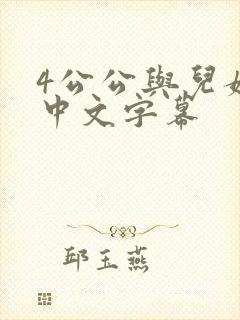 4公公與兒媳
中文字幕
邱玉燕